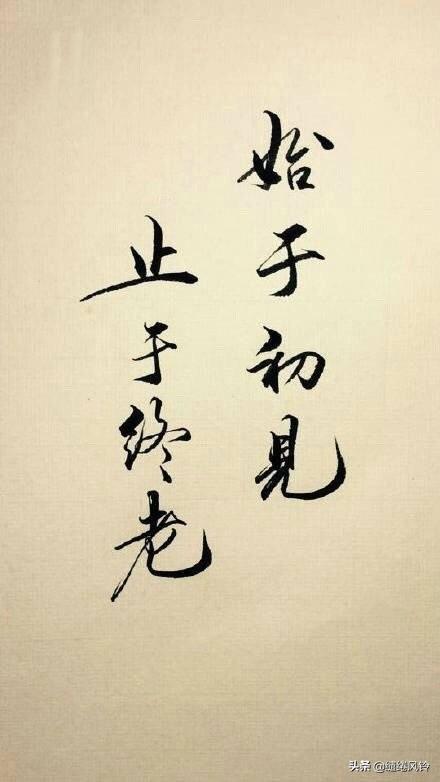 始于初見
止于终老
头条 @缱绻风铃